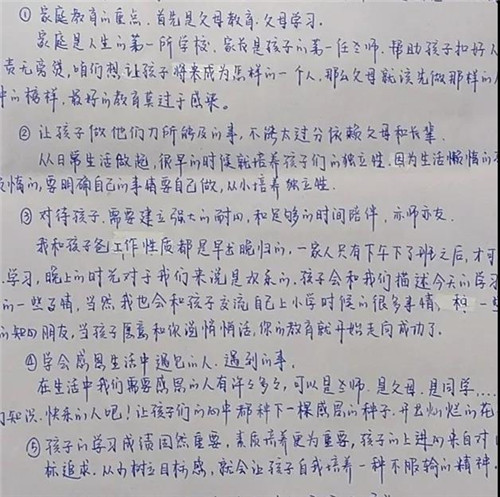 ①家庭教育的重点,首先是父母教育.父母学习.
家庭是人生的第一所学校,家长是孩子的第一任老师,帮助孩子扣好人
责无旁贷,咱们想让孩子将来成为怎样的一个人,那么父母就该先做那样的人
中的榜样,最好的教育莫过于感染。
②让孩子做他们力所能及的事,不能太过分依赖父母和长辈.
从日常生活做起,很早的时候就培养孩子们的独立性,因为生活懒惰的
懒惰的,要明确自己的事情要自己做,从小培养独立性.
③对待孩子,需要建立强大的耐心,和足够的时间陪伴,亦师亦友.
我和孩子爸工作性质都是早出晚归的,一家人只有下午下了班之后,才可
学习,晚上的时光对于我们来说是欢乐的,孩子会和我们描述今天的学习
的一些事情,当然我也会和孩子交流自己上小学时候的很多事情,和一些
的知心朋友,当孩子愿意和你说悄悄话,你的教育就开始走向成功了.
④学会感恩生活中遇见的人、遇到的事.
在生活中我们需要感恩的人有许许多多,可以是老师.是父母.是同学....
们知识.快乐的人吧!让孩子们的心中都种下一棵感恩的种子,开出灿烂的花
⑤孩子的学习成绩固然重要,素质培养更为重要,孩子的上进心来自对
标追求.从小树立目标感,就会让孩子自我培养一种不服输的精神,